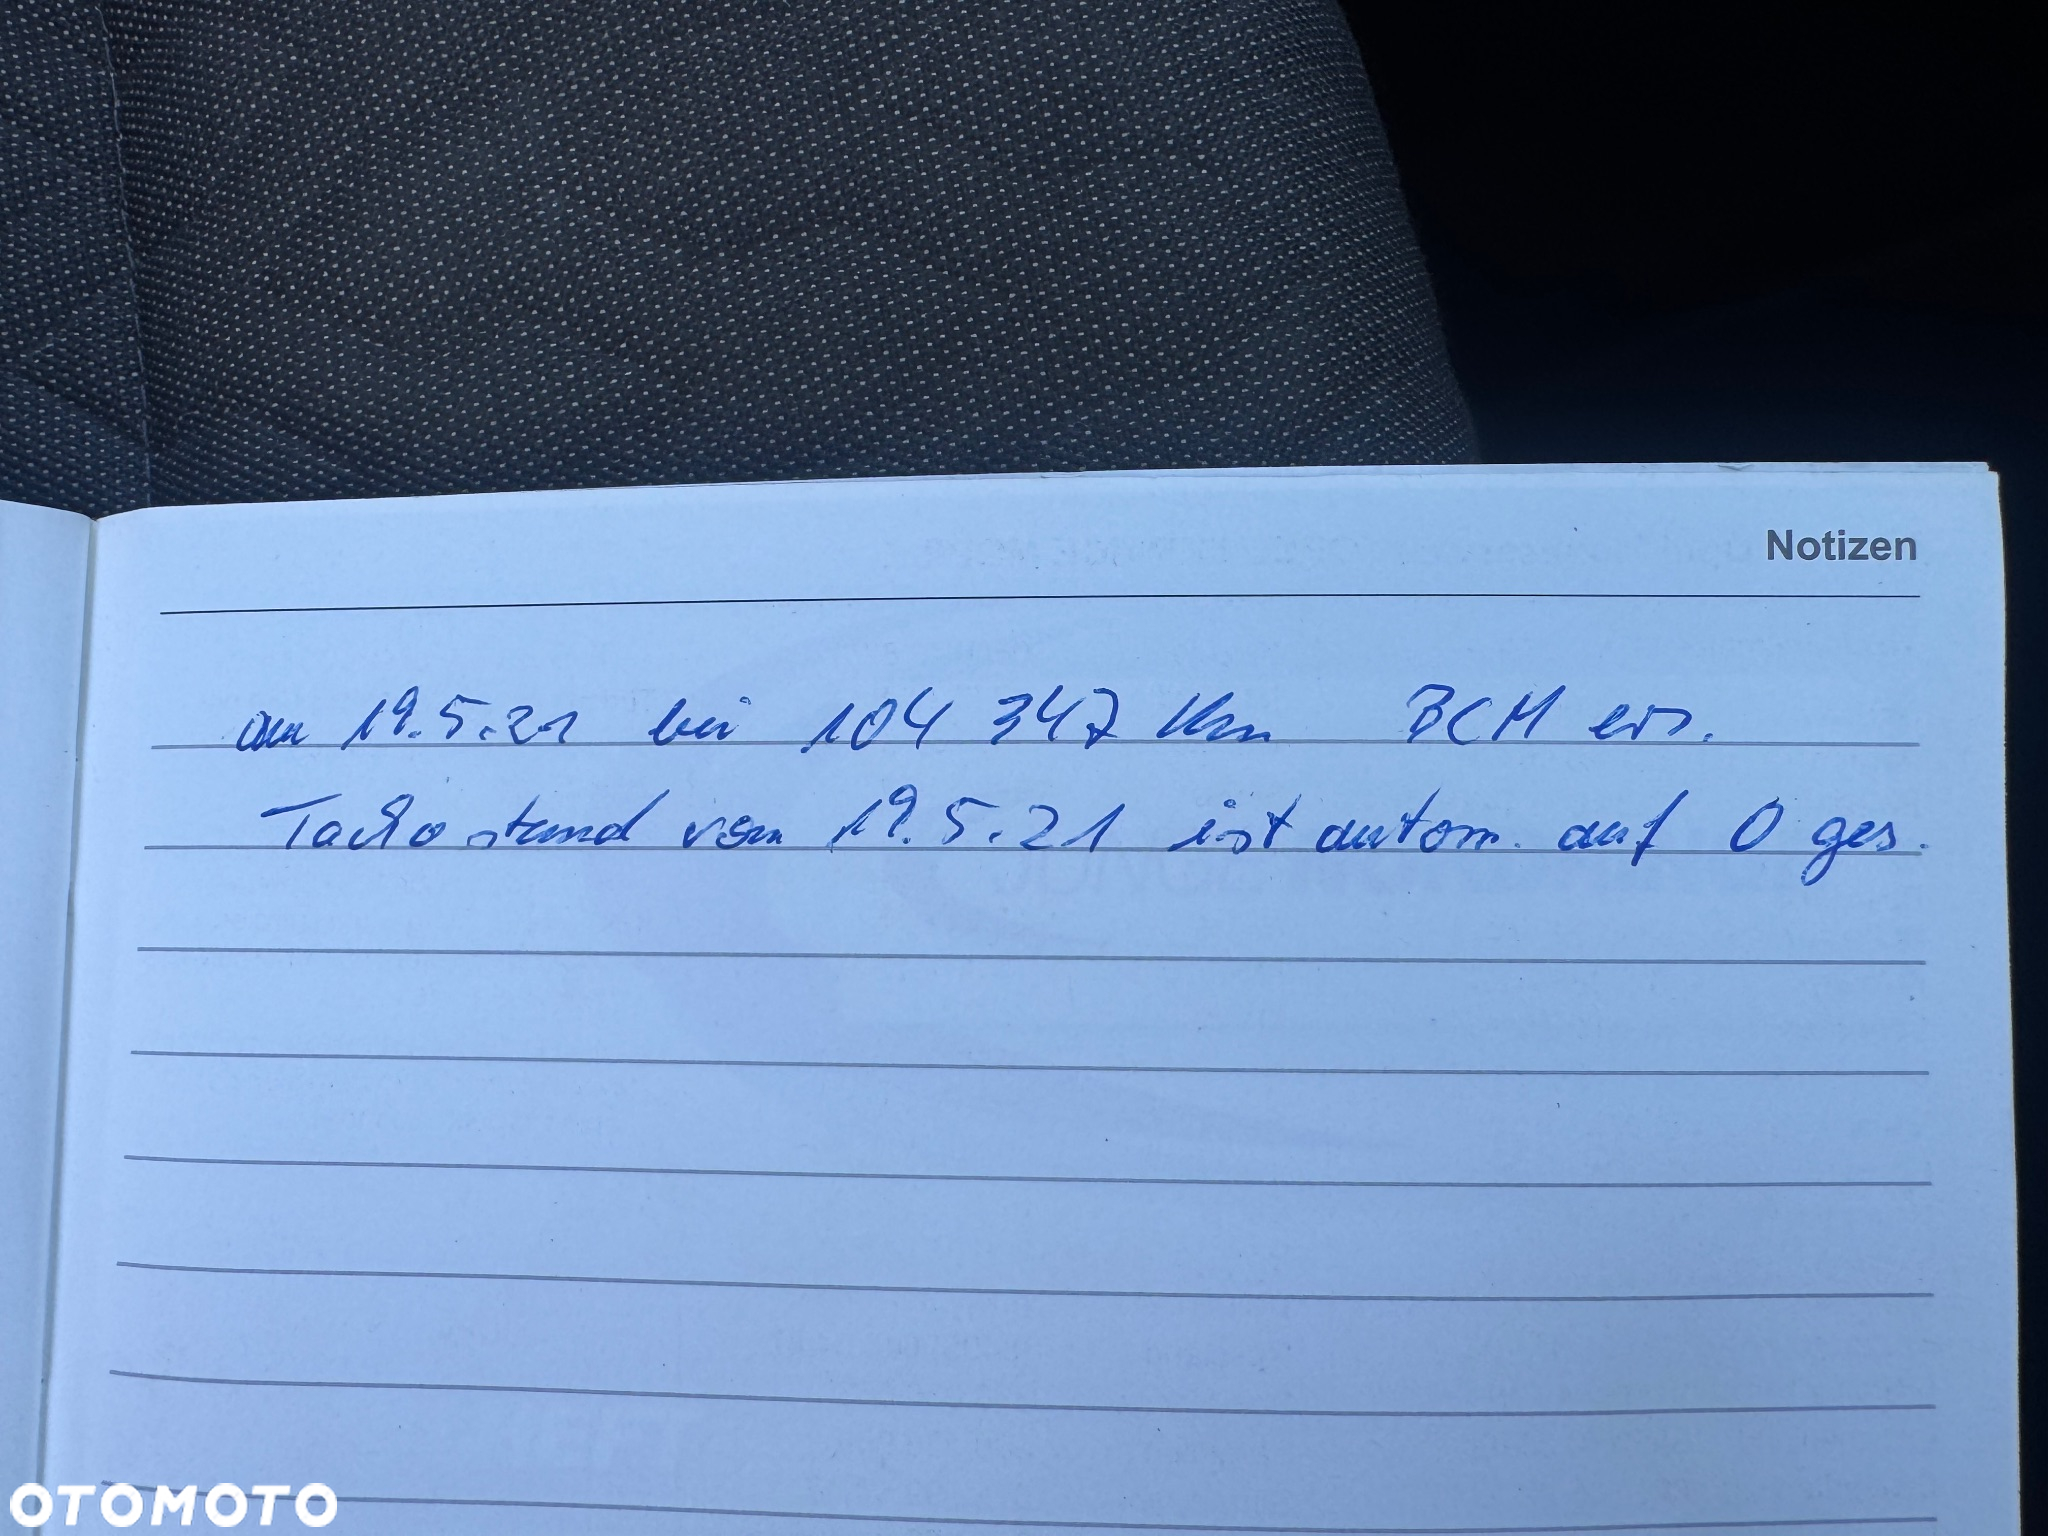 Notizen
am 19.5.21 bei 104 347 Km BCM ers.
Tachostand vom 19.5.21 ist autom. auf 0 ges.
OTOMOTO